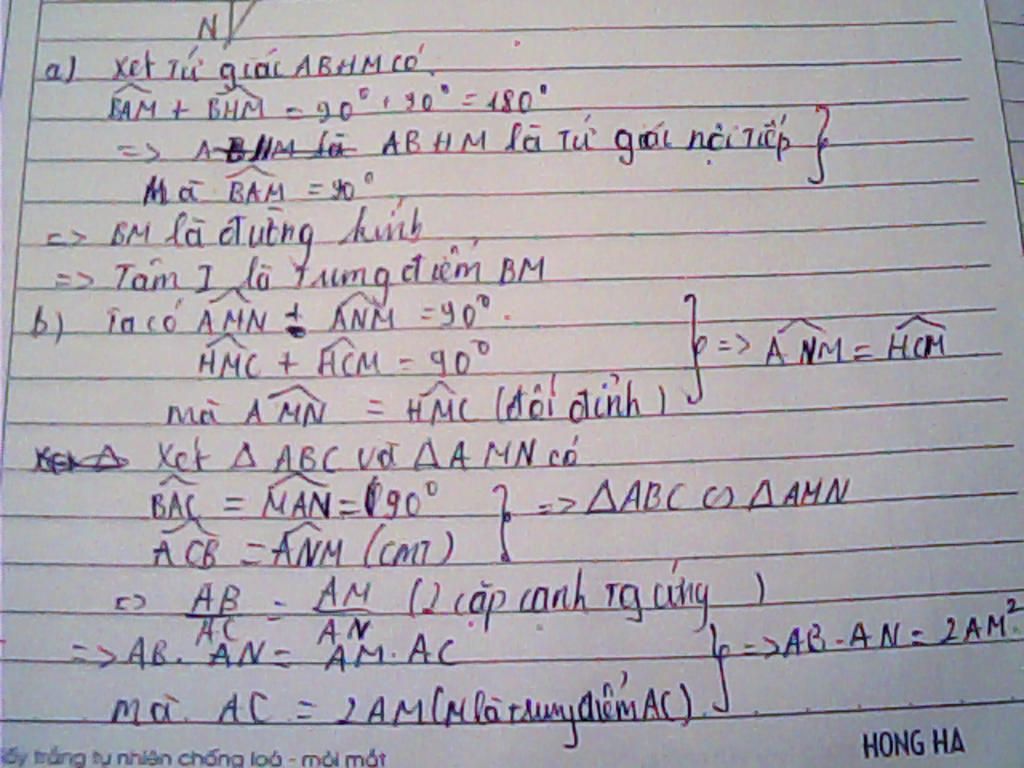 N
a) Xét tứ giác ABHM có
BAM + BHM = 90° + 90° = 180°
=> ABHM là ABHM là tứ giác nội tiếp
Mà BAM = 90°
=> BM là đường kính
=> Tâm I là trung điểm BM
b) Ta có AMN + ANM = 90°.
HMC + HCM = 90° => ANM = HCM
mà AMN = HMC (đối đỉnh)
Xét Δ Xét Δ ABC và Δ AMN có
BAC = MAN = 90° => ΔABC ∽ ΔAMN
ACB = ANM (cmt)
=> AB/AC = AM/AN (2 cặp cạnh tg ứng)
=> AB. AN = AM. AC => AB. AN = 2AM².
mà AC = 2AM (M là trung điểm AC).
ấy trắng tự nhiên chống loá - mỏi mắt
HONG HA